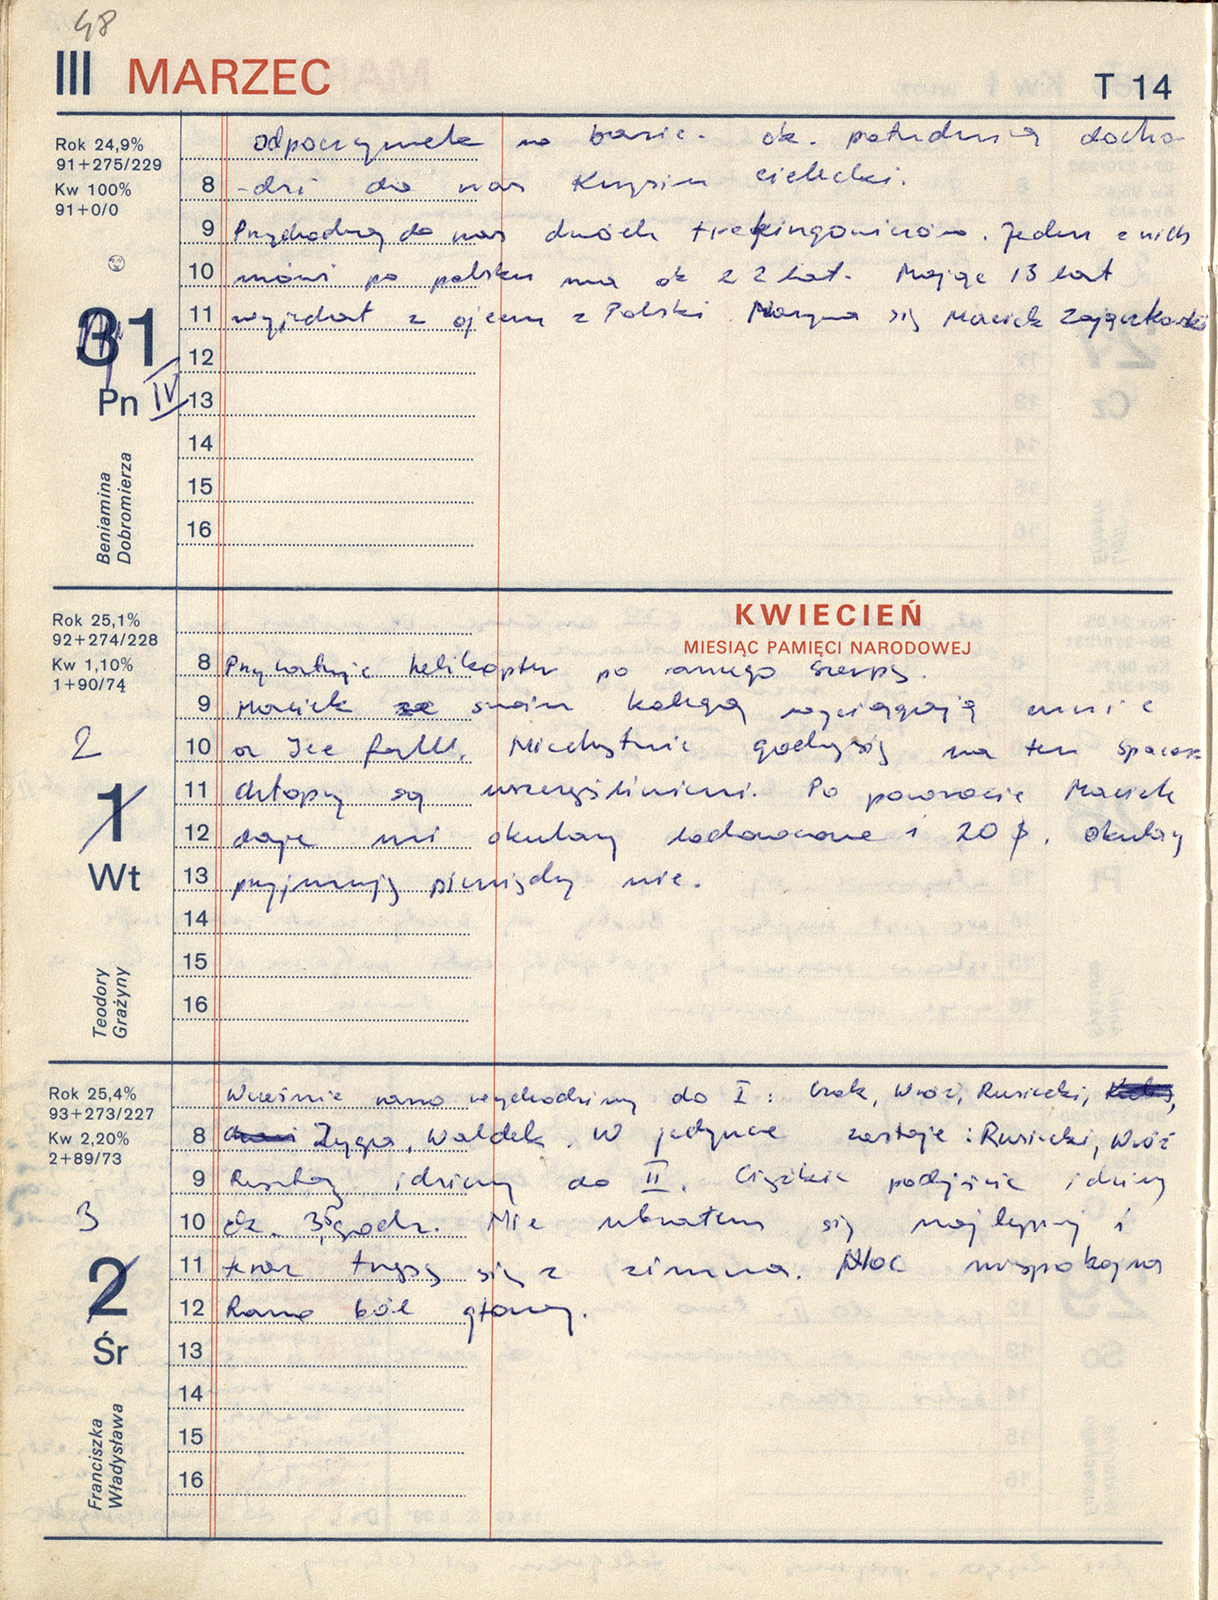 48
III MARZEC T 14
Rok 24,9%
91+275/229
Kw 100%
91+0/0
31
Pn IV
Beniamina
Dobromierza
odpoczynek w bazie. ok. południa docho-
8 -dzi do nas Krzysiu Cielecki.
9 Przychodzą do nas dwóch trekingowiczów. Jeden z nich
10 mówi po polsku ma ok 22 lat. Mając 13 lat
11 wyjechał z ojcem z Polski. Nazywa się Maciek Zajączkowski
12
13
14
15
16
KWIECIEŃ
MIESIĄC PAMIĘCI NARODOWEJ
Rok 25,1%
92+274/228
Kw 1,10%
1+90/74
2
1
Wt
Teodory
Grażyny
8 Przylatuje helikopter po szerpę.
9 Maciek ze swoim kolegą wyciągają mnie
10 Ice fall. Niechętnie godzę się na ten spacer
11 chłopcy są uszczęśliwieni. Po powrocie Maciek
12 daje mi okulary lodowcowe i 20 $. Okulary
13 przyjmuję pieniędzy nie.
14
15
16
Rok 25,4%
93+273/227
Kw 2,20%
2+89/73
3
2
Śr
Franciszka
Władysława
Wcześnie rano wychodzimy do I: Czok, Wróż, Rusiecki,
8 Zyga, Waldek. W jedynce zostaje: Rusiecki, Wróż
9 Resztą idziemy do II. Ciężkie podejście idziemy
10 ok. 3,5 godz. Nie ubrałem się najlepiej i
11 teraz trzęsę się z zimna. Noc niespokojna
12 Rano ból głowy.
13
14
15
16